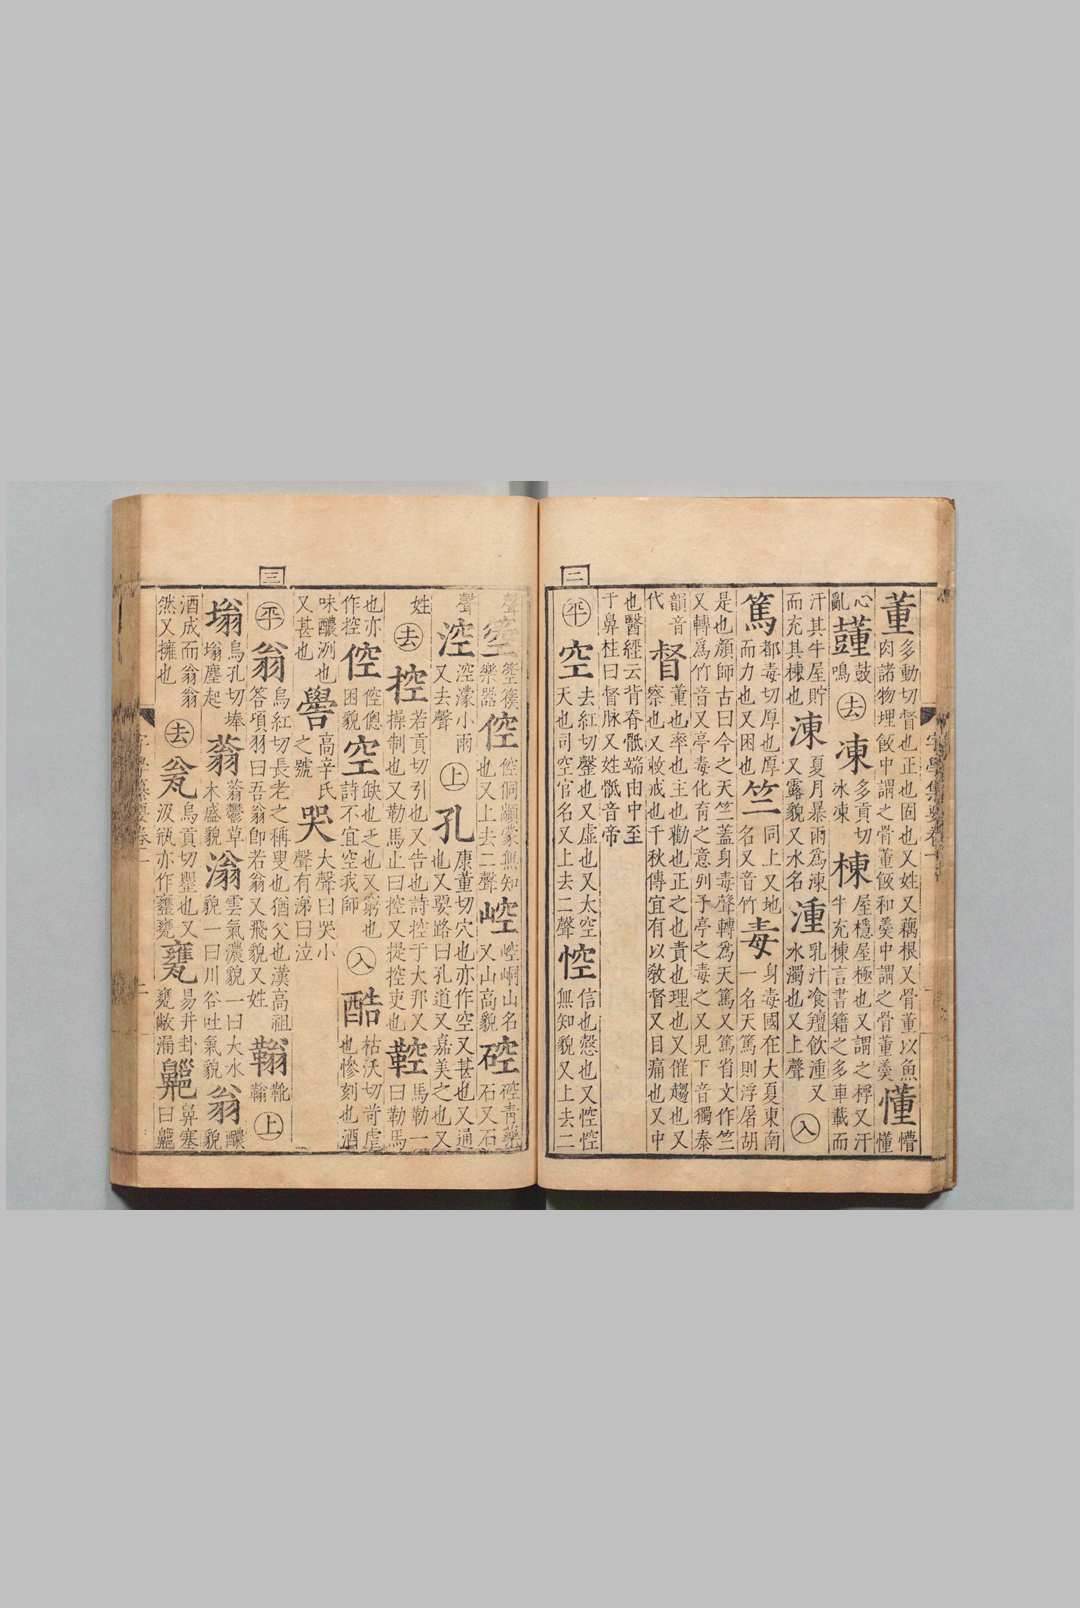 董多動切督也正也固也又姓又藕根又骨董以魚肉諸物埋飯中謂之骨董飯和羹中謂之骨董羹懂懵懂
心亂鼓鳴去凍多貢切冰凍棟屋穩屋極也又謂之桴又汗牛充棟言書籍之多車載而
汗其牛屋貯而充其棟也涷夏月暴雨爲涷又露貌又水名湩乳汁食羶飲湩又水濁也又上聲入
篤都毒切厚也厚而力也又困也竺同上又地名又音竹毒身毒國在大夏東南一名天篤則浮屠胡
是也顏師古曰今之天竺蓋身毒聲轉爲天篤又篤省文作竺又轉爲竹音又亭毒化育之意列子亭之毒之又見下音獨秦
韻音代督董也率也主也勸也正之也責也理也又催趨也又察也又敕戒也千秋傳宜有以敎督又目痛也又中
也醫經云背脊骶端由中至于鼻柱曰督脉又姓骶音帝
二
平空去紅切罄也又虛也又太空天也司空官名又上去二聲悾信也愨也又悾悾無知貌又上去二
聲箜箜篌樂器倥倥侗顓蒙無知也又上去二聲崆崆峒山名又山高貌硿硿青藥石又石
聲涳涳濛小雨又去聲上孔康董切穴也亦作空又甚也又通也又要路曰孔道又嘉美之也又
姓去控苦貢切引也又告也詩控于大邦又操制也又勒馬止曰控又提控吏也鞚馬勒一曰勒馬
也亦作控倥倥傯困貌空缺也乏也又窮也詩不宜空我師入酷枯沃切苛虐也慘刻也酒
味醲洌也又甚也嚳高辛氏之號哭大聲曰哭小聲有涕曰泣
三
平翁烏紅切長老之稱叟也猶父也漢高祖答項羽曰吾翁卽若翁又飛貌又姓上
塕烏孔切埲塕塵起蓊蓊鬱草木盛貌滃雲氣濃貌一曰大水貌一曰川谷吐氣貌醲貌
酒成而滃滃然又擁也去瓮烏貢切罌也又汲瓶亦作甕罋甕易井卦甕敝漏齆鼻塞曰齆